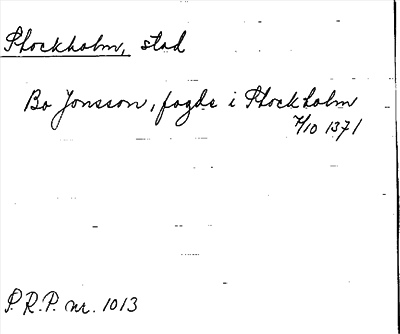 Stockholm, stad
Bo Jonsson, fogde i Stockholm
7/10 1371
P.R.P. nr. 1013